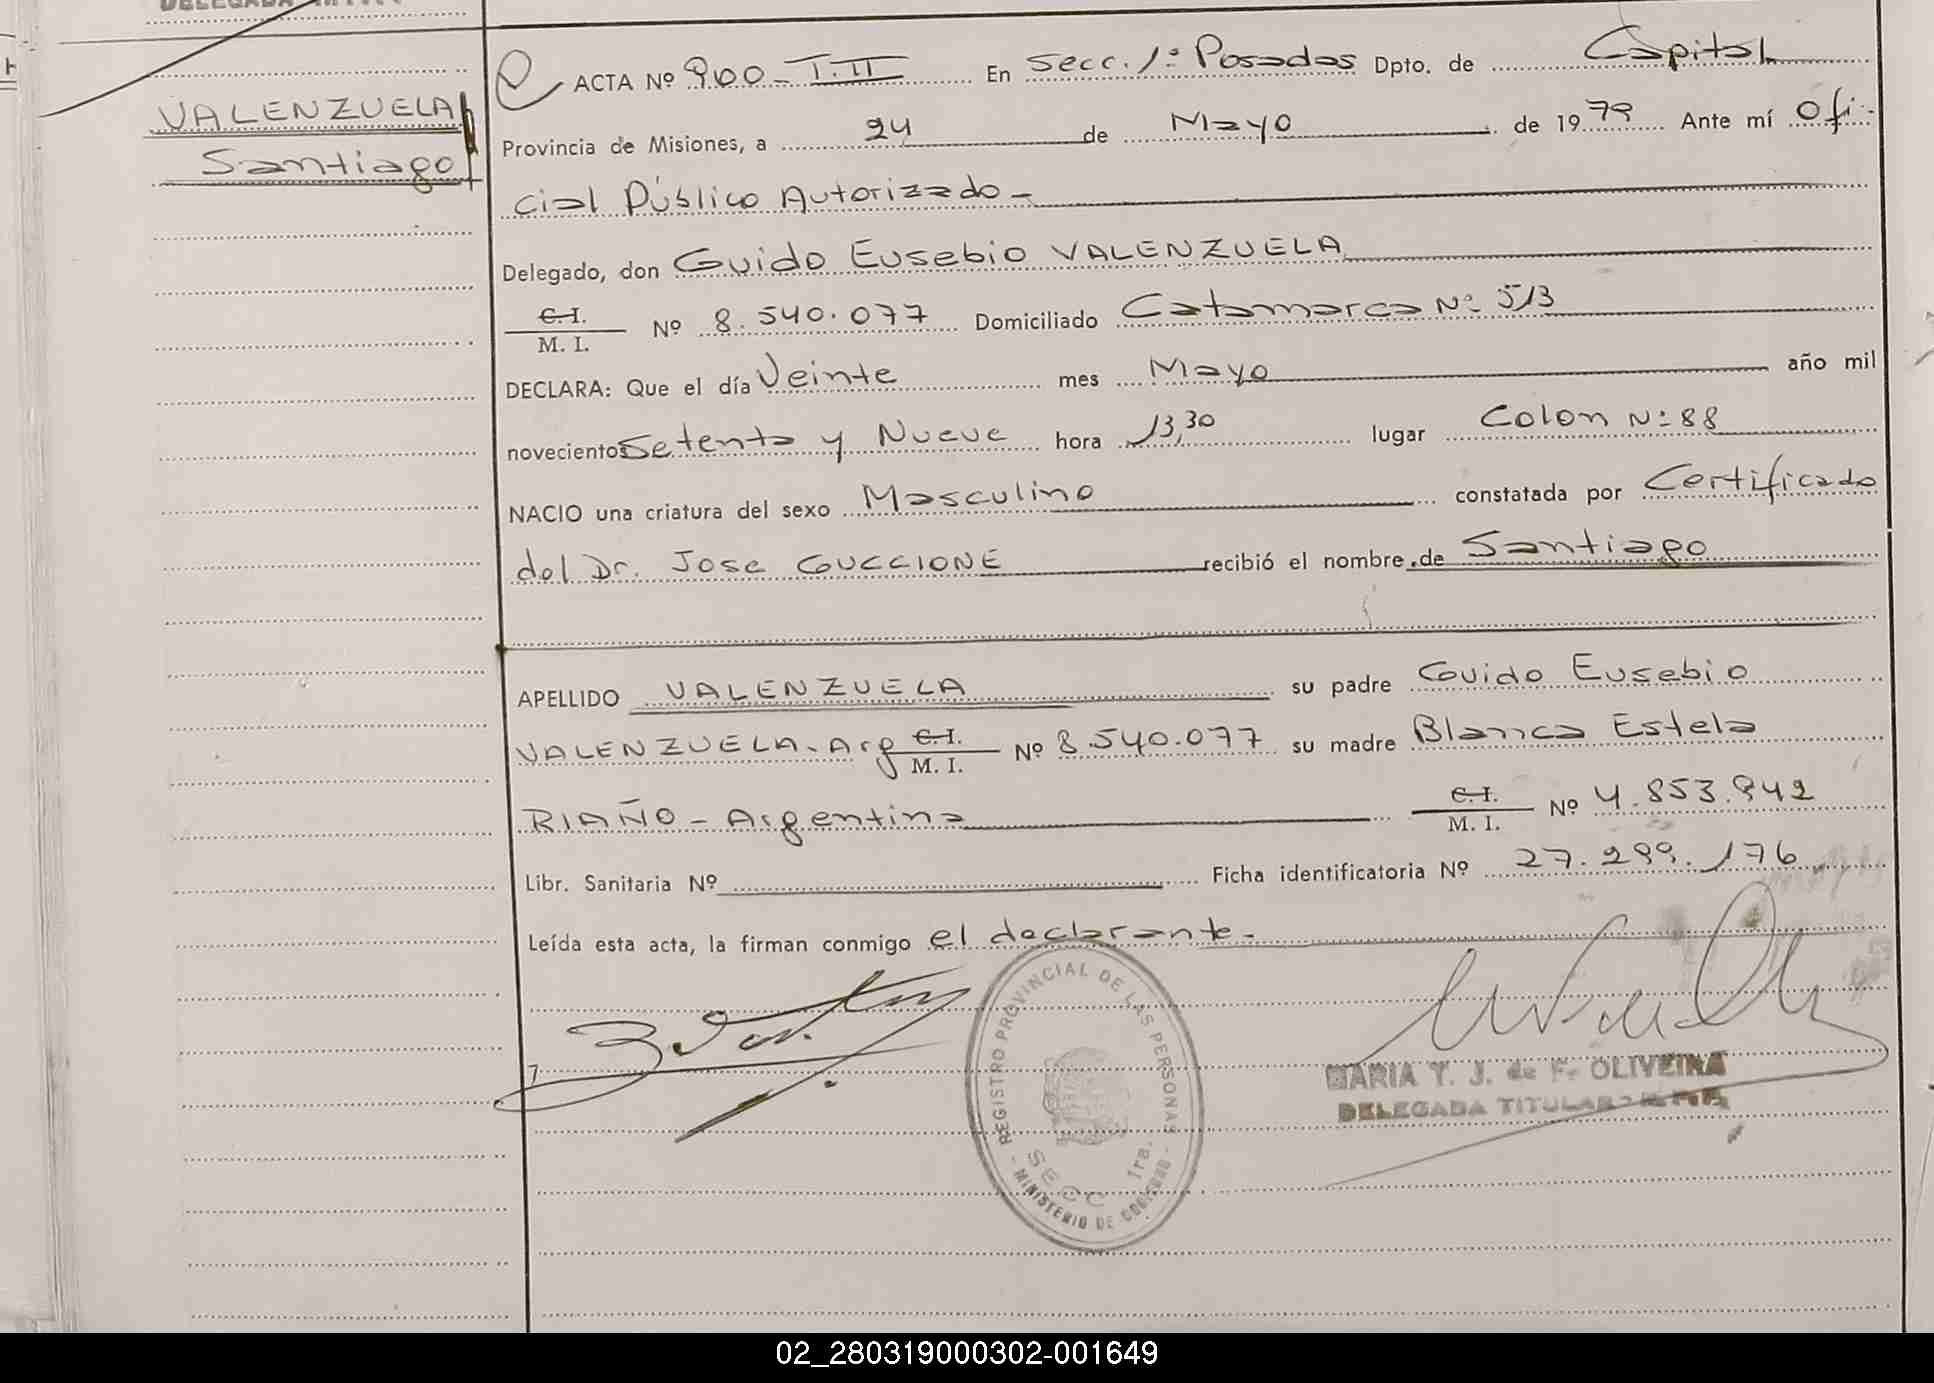 VALENZUELA
Santiago
ACTA Nº 900 - T. II En Secc. 1ª Posadas Dpto. de Capital
Provincia de Misiones, a 24 de Mayo de 1979 Ante mí Ofi-
cial Público Autorizado -
Delegado, don Guido Eusebio VALENZUELA
C. I.
M. I. Nº 8.540.077 Domiciliado Catamarca Nº 513
DECLARA: Que el día Veinte mes Mayo año mil
novecientos Setenta y Nueve hora 13,30 lugar Colon Nº 88
NACIO una criatura del sexo Masculino constatada por Certificado
del Dr. Jose GUCCIONE recibió el nombre de Santiago
APELLIDO VALENZUELA su padre Guido Eusebio
VALENZUELA - Arg C. I. M. I. Nº 8.540.077 su madre Blanca Estela
RIAÑO - Argentina C. I. M. I. Nº 4.853.942
Libr. Sanitaria Nº Ficha identificatoria Nº 27.299.176
Leída esta acta, la firman conmigo el declarante -
REGISTRO PROVINCIAL DE LAS PERSONAS
SECC. 1ra.
- MINISTERIO DE GOBIERNO -
MARIA T. J. de F. OLIVEIRA
DELEGADA TITULAR
02_280319000302-001649